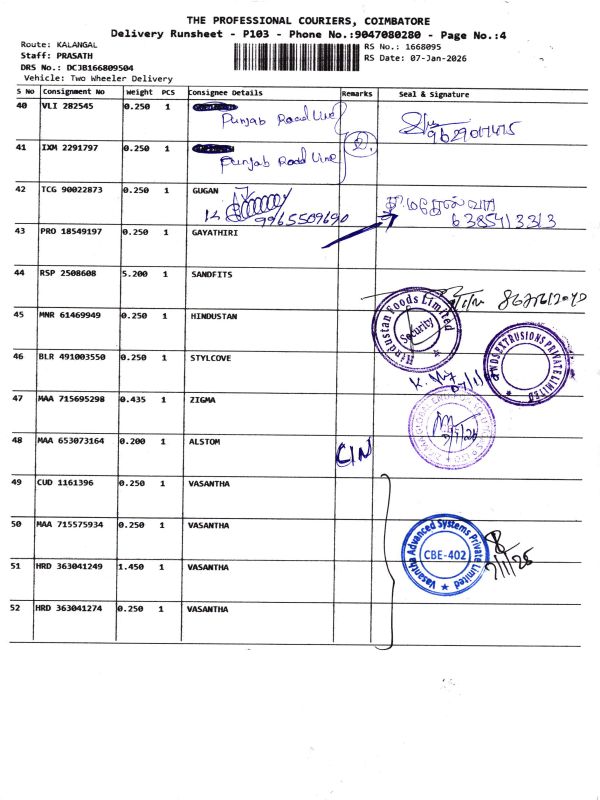 THE PROFESSIONAL COURIERS, COIMBATORE
Delivery Runsheet - P103 - Phone No.:9047080280 - Page No.:4
Route: KALANGAL
RS No.: 1668095
Staff: PRASATH
RS Date: 07-Jan-2026
DRS No.: DCJB166809504
Vehicle: Two Wheeler Delivery
S No Consignment No Weight PCS Consignee Details Remarks Seal & Signature
40 VLI 282545 0.250 1 Punjab Road Line
41 IXM 2291797 0.250 1 Punjab Road Line 2.
42 TCG 90022873 0.250 1 GUGAN
9965509690
6385413313
43 PRO 18549197 0.250 1 GAYATHIRI
44 RSP 2508608 5.200 1 SANDFITS
45 MNR 61469949 0.250 1 HINDUSTAN Hindustan Foods Limited Security
46 BLR 491003550 0.250 1 STYLCOVE PRIVATE LIMITED
47 MAA 715695298 0.435 1 ZIGMA
48 MAA 653073164 0.200 1 ALSTOM C/N
49 CUD 1161396 0.250 1 VASANTHA
50 MAA 715575934 0.250 1 VASANTHA Vasantha Advanced Systems Private Limited CBE-402
51 HRD 363041249 1.450 1 VASANTHA
52 HRD 363041274 0.250 1 VASANTHA